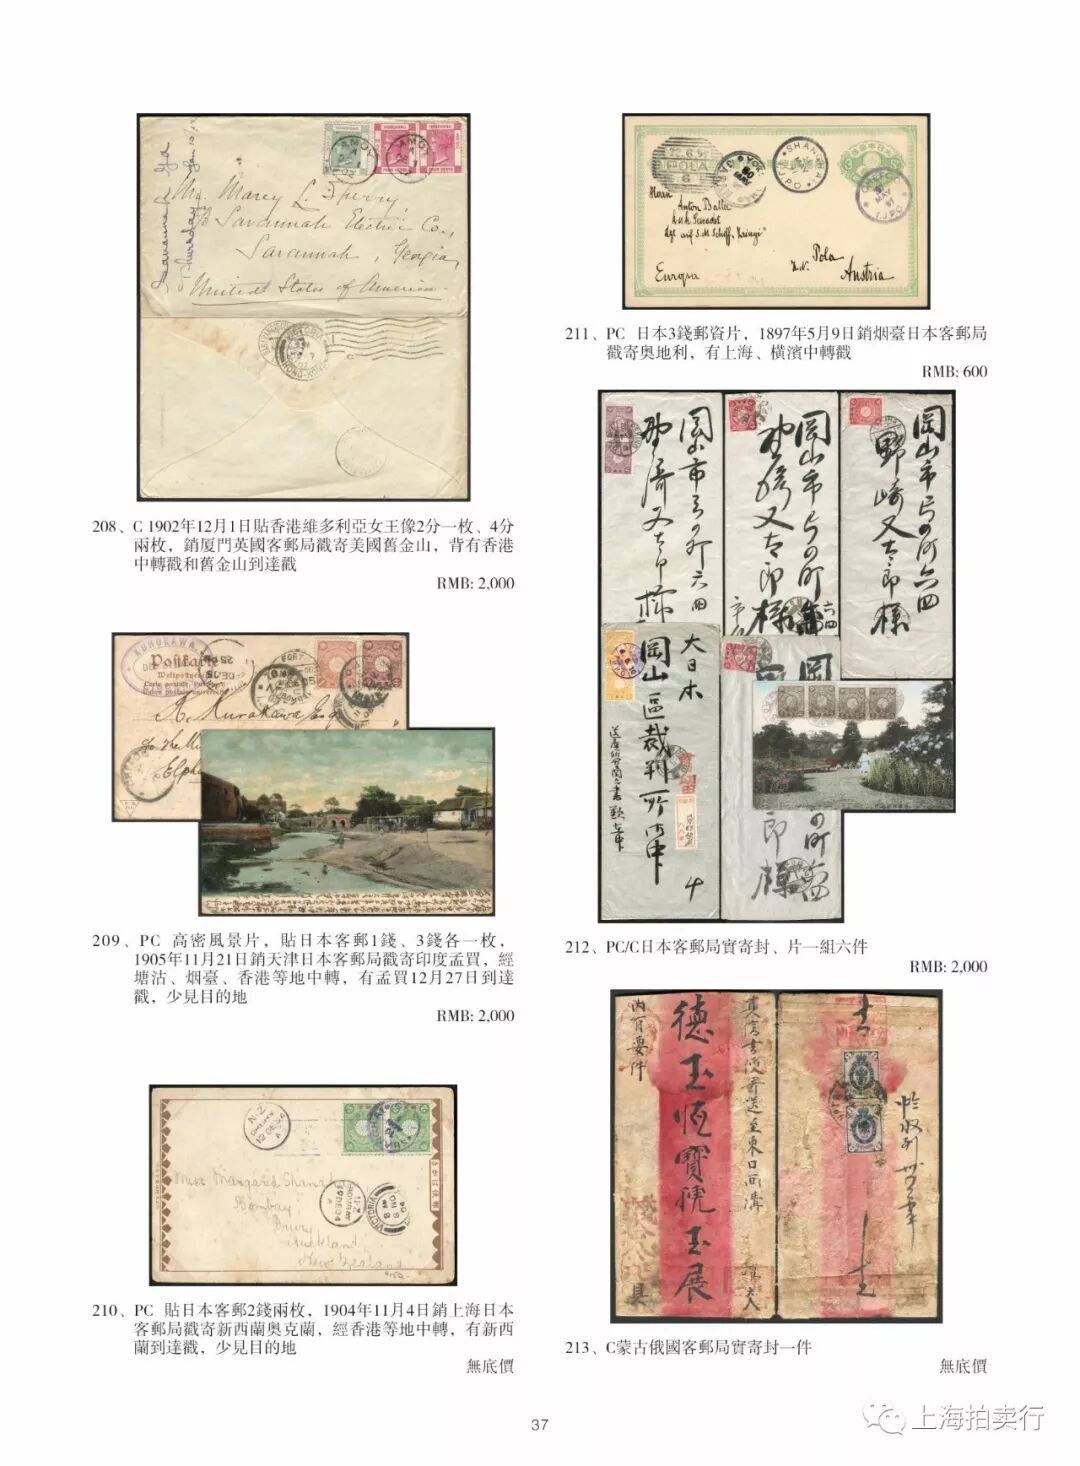 AMOY
Mrs. Marcy L. Sperry,
c/o Savannah Electric Co.,
Savannah, Georgia,
United States of America
208、C 1902年12月1日貼香港維多利亞女王像2分一枚、4分
兩枚，銷厦門英國客郵局戳寄美國舊金山，背有香港
中轉戳和舊金山到達戳
RMB: 2,000
KUROKAWA
Postkarte
Weltpostverein
209、PC 高密風景片，貼日本客郵1錢、3錢各一枚，
1905年11月21日銷天津日本客郵局戳寄印度孟買，經
塘沽、烟臺、香港等地中轉，有孟買12月27日到達
戳，少見目的地
RMB: 2,000
VICTORIA
Miss Margaret Shand
Bombay
Drury
Auckland
New Zealand
210、PC 貼日本客郵2錢兩枚，1904年11月4日銷上海日本
客郵局戳寄新西蘭奥克蘭，經香港等地中轉，有新西
蘭到達戳，少見目的地
無底價
POLA
SHANGHAI
I.J.P.O
Herrn
Anton Baller
Pola
Europa
Austria
211、PC 日本3錢郵資片，1897年5月9日銷烟臺日本客郵局
戳寄奥地利，有上海、橫濱中轉戳
RMB: 600
岡山市
岡山市
野崎又太郎様
岡山市
野崎又太郎様
大日本
岡山區裁判所
212、PC/C日本客郵局實寄封、片一組六件
RMB: 2,000
內有要件
德玉恆寶號玉展
213、C蒙古俄國客郵局實寄封一件
無底價
37
上海拍卖行